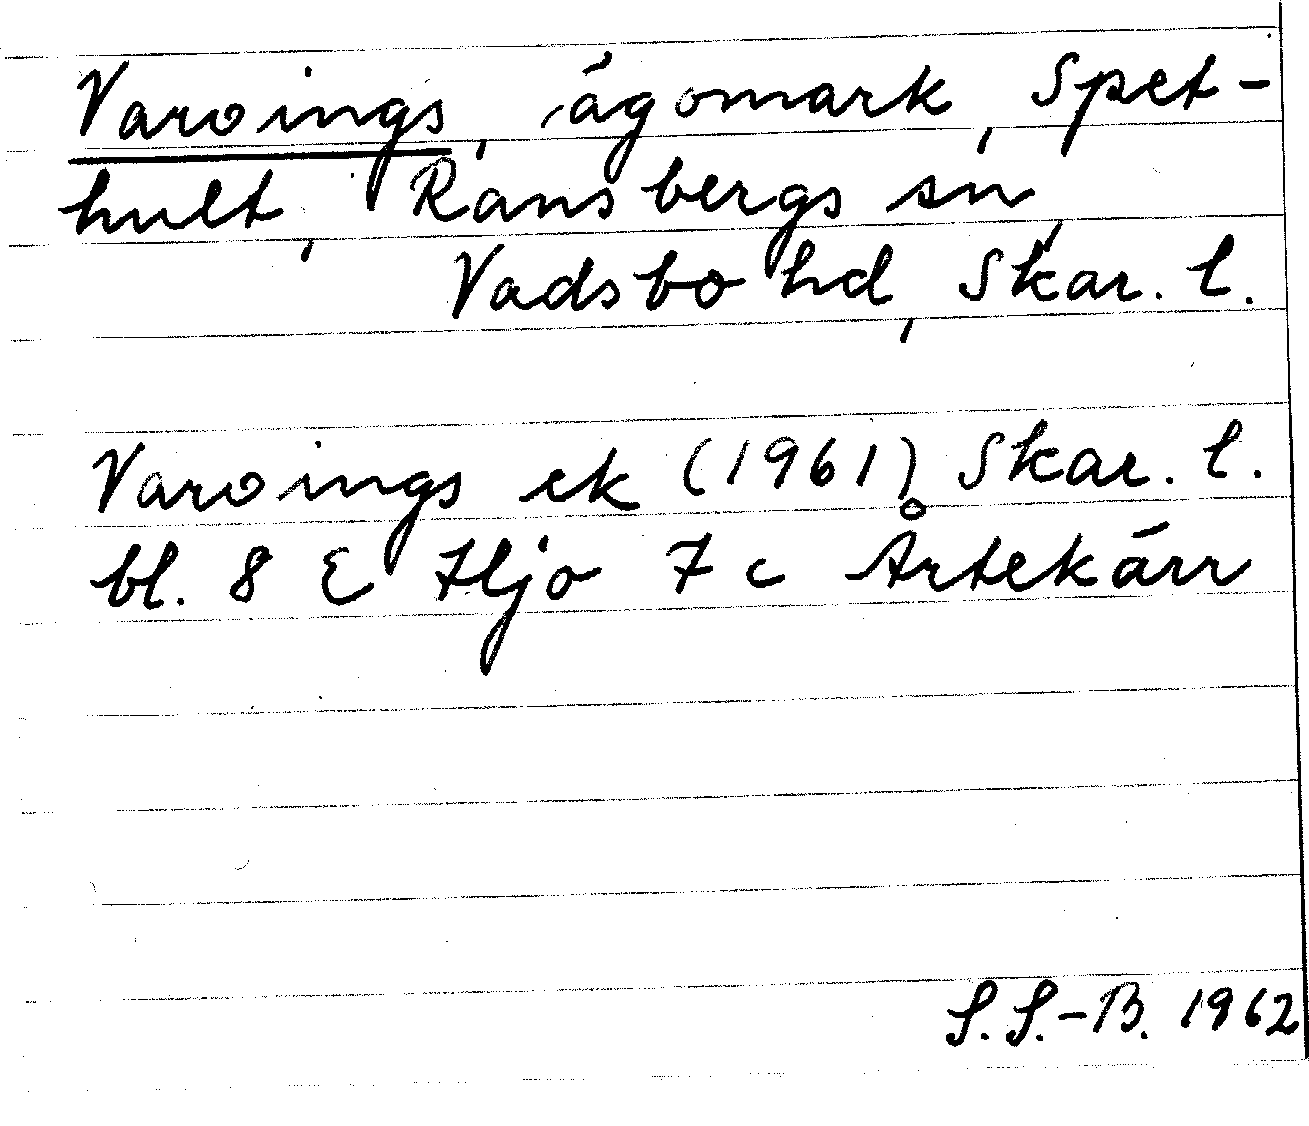 Varoings, ägomark, Spet-
hult, Ransbergs sn,
Vadsbo hd, Skar. l.
Varoings ek (1961) Skar. l.
bl. 8 E Hjo 7 c Årtekärr
S. S.-B. 1962